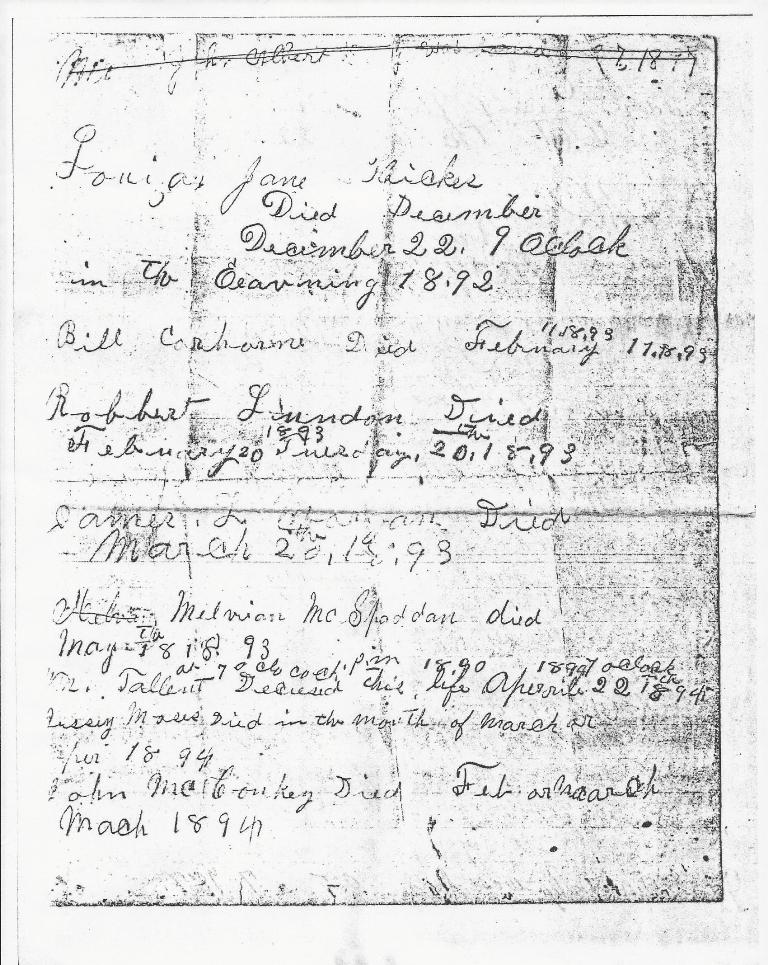 Albert 18
Jane Ricker
Died December
December 22. 9 Oclock
in th Eeavrning 18.92
Bill Died February 11.18,93 17,18,93
Robbert Lundon Died
February 20 18 93 Tuesday, 20th, 18,93
James. L Died
March 20th, 18,93
Melvian McSpaddan died
May 18th 18 93
at 7 oclocck, p,m 18.90 1894 7 oclock
Tallent Deceased this life Aperile 22 18 94
Moses Died in the month of March or
18 94
John McConkey Died Feb or march
Mach 18 94